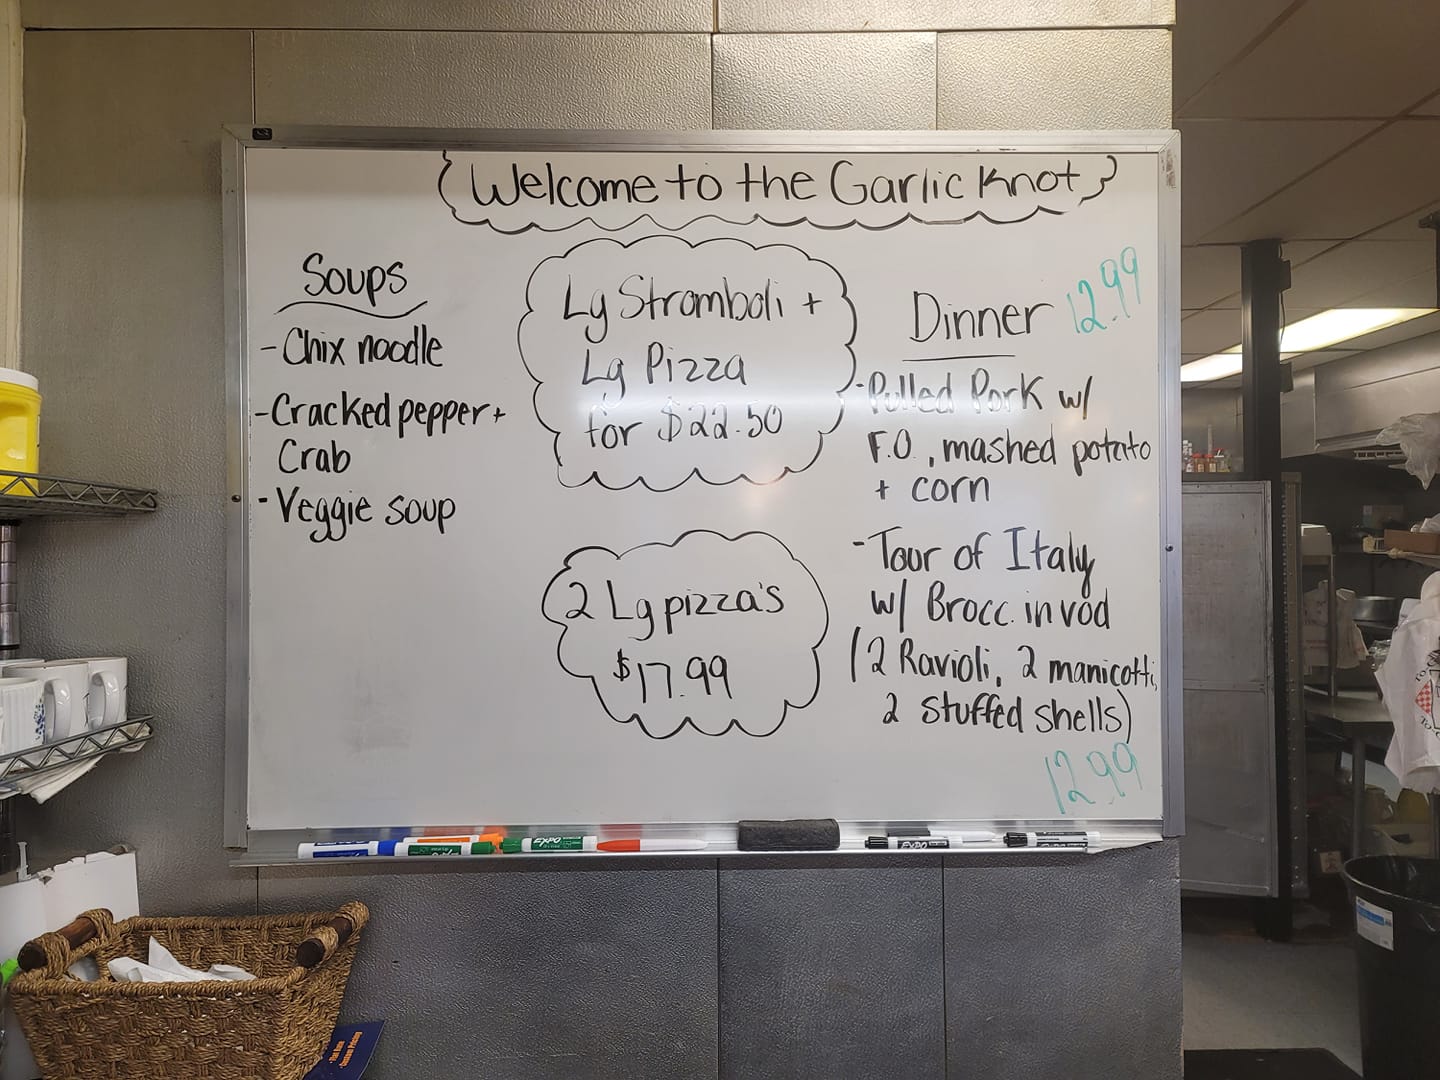 Welcome to the Garlic Knot
Soups
- Chix noodle
- Cracked pepper +
Crab
- Veggie soup
Lg Stromboli +
Lg Pizza
for $22.50
2 Lg pizza's
$17.99
Dinner 12.99
- Pulled Pork w/
F.O., mashed potato
+ corn
- Tour of Italy
w/ Brocc. in vod
(2 Ravioli, 2 manicotti,
2 stuffed shells)
12.99
EXPO
EXPO